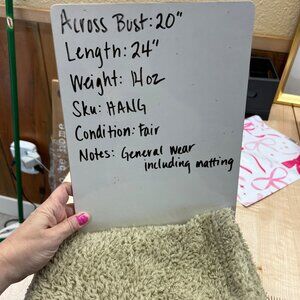 Across Bust: 20"
Length: 24"
Weight: 14oz
Sku: HANG
Condition: Fair
Notes: General wear
including matting